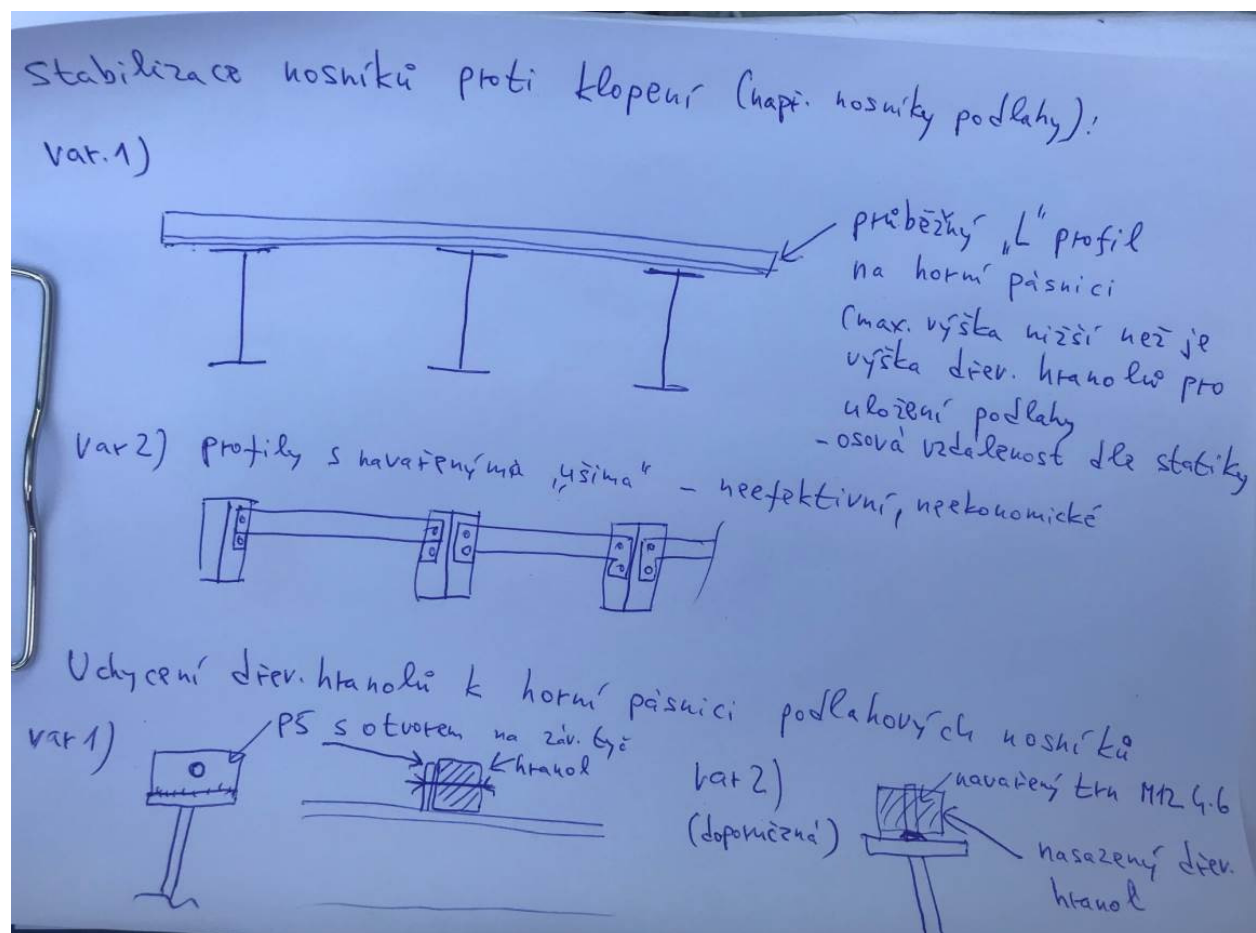 Stabilizace nosníků proti klopení (např. nosníky podlahy):
var. 1)
průběžný „L“ profil
na horní pásnici
(max. výška nižší než je
výška dřev. hranolů pro
uložení podlahy
- osová vzdálenost dle statiky
var 2) profily s navařenýma „ušima“ - neefektivní, neekonomické
Uchycení dřev. hranolů k horní pásnici podlahových nosníků
var 1)
P5 s otvorem na záv. tyč
hranol
var 2)
(doporučená)
navařený trn M12 4.6
nasazený dřev.
hranol